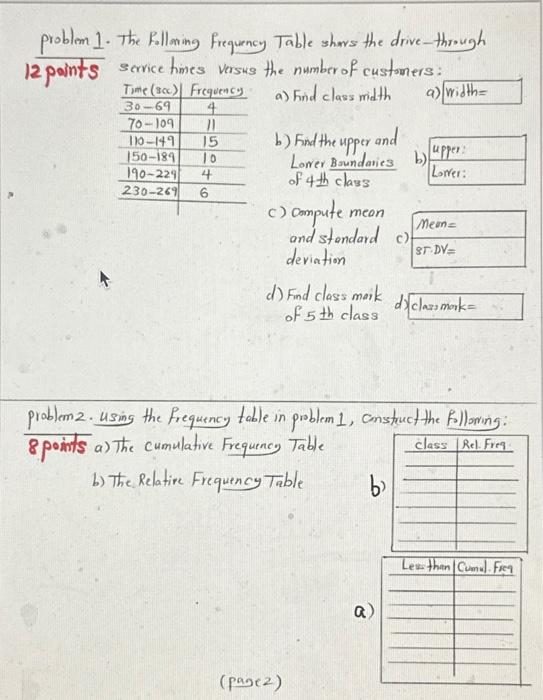 problem 1. The Following Frequency Table shows the drive-through
12 points service times versus the number of customers:
Time (sec) Frequency
30-69 4
70-109 11
110-149 15
150-189 10
190-229 4
230-269 6
a) Find class width
a) width=
b) Find the upper and
Lower Boundaries
of 4th class
b) upper:
Lower:
c) Compute mean
and standard
deviation
c) Mean=
ST.DV=
d) Find class mark
of 5th class
d) class mark=
problem 2. Using the Frequency table in problem 1, construct the following:
8 points a) The Cumulative Frequency Table
b) The Relative Frequency Table
b) class Rel. Freq.
a) Less than Cumul. Freq
(page 2)